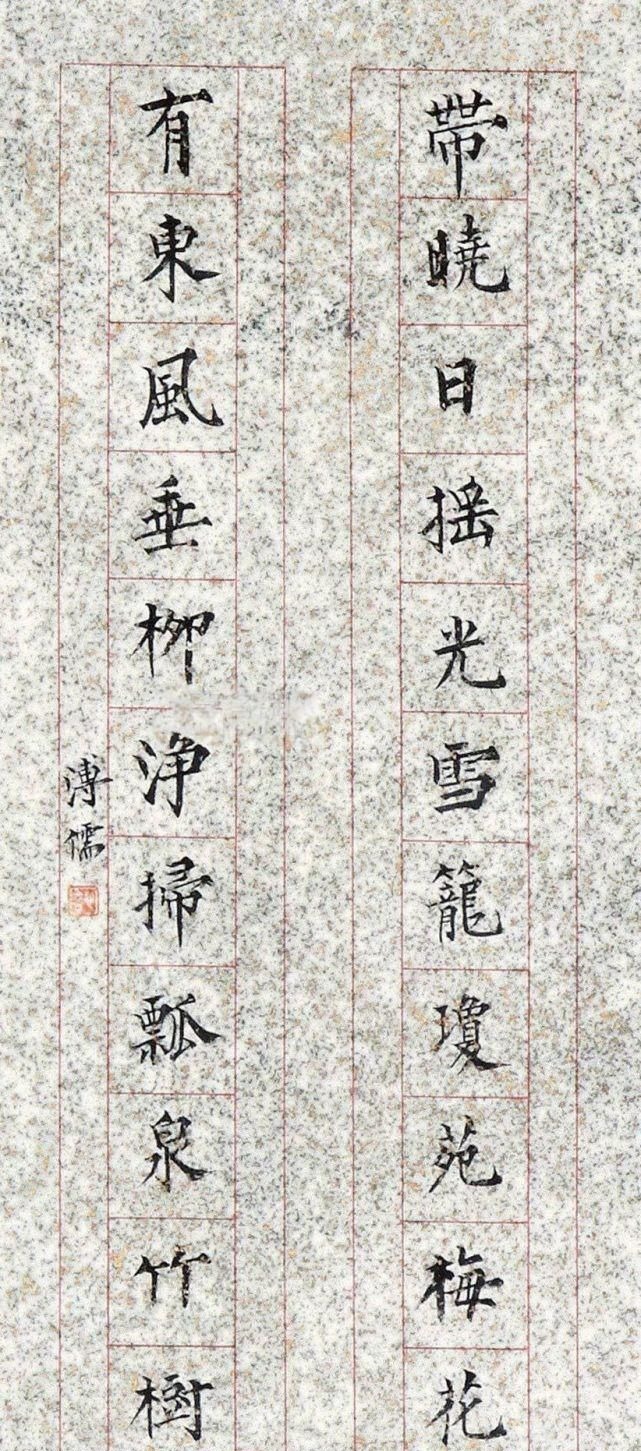 帶曉日揺光雪籠瓊苑梅花
有東風垂柳浄掃瓢泉竹樹
溥儒